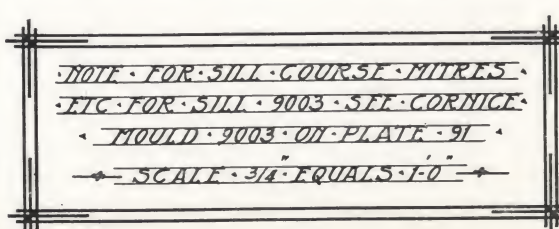 ·NOTE · FOR · SILL · COURSE · MITRES ·
· ETC · FOR · SILL · 9003 · SEE · CORNICE ·
· MOULD · 9003 · ON · PLATE · 91 ·
SCALE · 3/4" EQUALS · 1'-0"